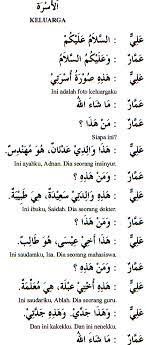 الأُسْرَة
KELUARGA
عَلِيٌّ : السَّلاَمُ عَلَيْكُمْ
عَمَّارٌ : وَعَلَيْكُمُ السَّلاَمُ
عَلِيٌّ : هَذِهِ صُوْرَةُ أُسْرَتِيْ
Ini adalah foto keluargaku
عَمَّارٌ : مَا شَاءَ الله
عَمَّارٌ : مَنْ هَذَا ؟
Siapa ini?
عَلِيٌّ : هَذَا وَالِدِيْ عَدْنَانُ، هُوَ مُهَنْدِسٌ.
Ini ayahku, Adnan. Dia seorang insinyur.
عَمَّارٌ : وَمَنْ هَذِهِ ؟
عَلِيٌّ : هَذِهِ وَالِدَتِيْ سَعِيْدَةُ، هِيَ طَبِيْبَةٌ.
Ini ibuku, Saidah. Dia seorang dokter.
عَمَّارٌ : وَمَنْ هَذَا ؟
عَلِيٌّ : هَذَا أَخِيْ عِيْسَى، هُوَ طَالِبٌ.
Ini saudaraku, Isa. Dia seorang mahasiswa.
عَمَّارٌ : وَمَنْ هَذِهِ ؟
عَلِيٌّ : هَذِهِ أُخْتِيْ عَبْلَة، هِيَ مُعَلِّمَةٌ.
Ini saudariku, Ablah. Dia seorang guru.
عَلِيٌّ : وَهَذَا جَدِّيْ. وَهَذِهِ جَدَّتِيْ.
Dan ini kakekku. Dan ini nenekku.
عَمَّارٌ : مَا شَاءَ الله